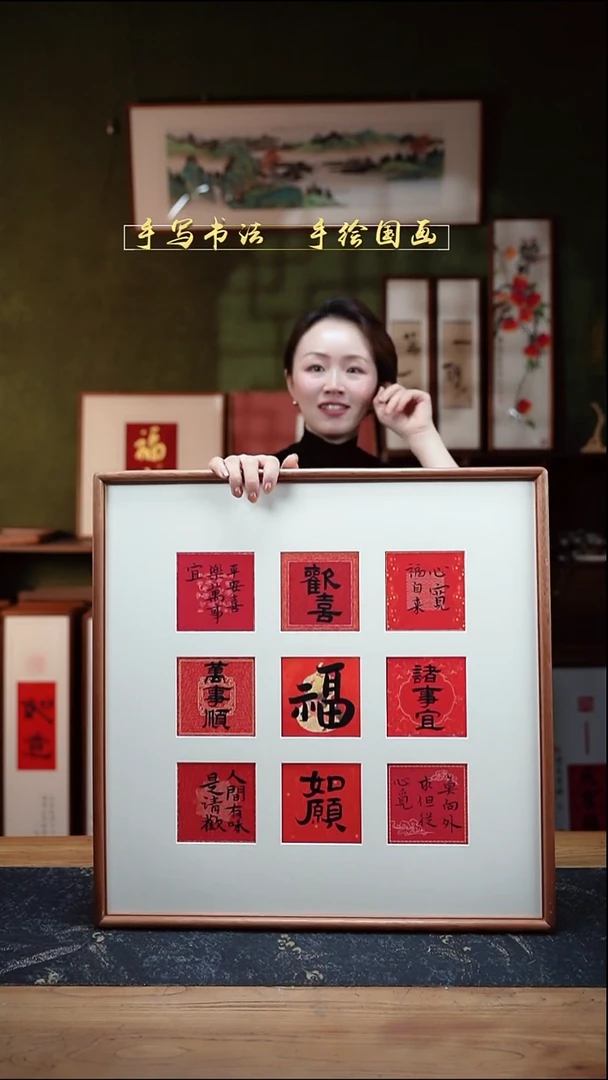 手写书法 手绘国画
福
平安喜
樂萬事
宜
歡喜
心寬
福自来
萬事順
福
諸事宜
人間有味
是清歡
如願
莫向外
求但從
心覓
如意